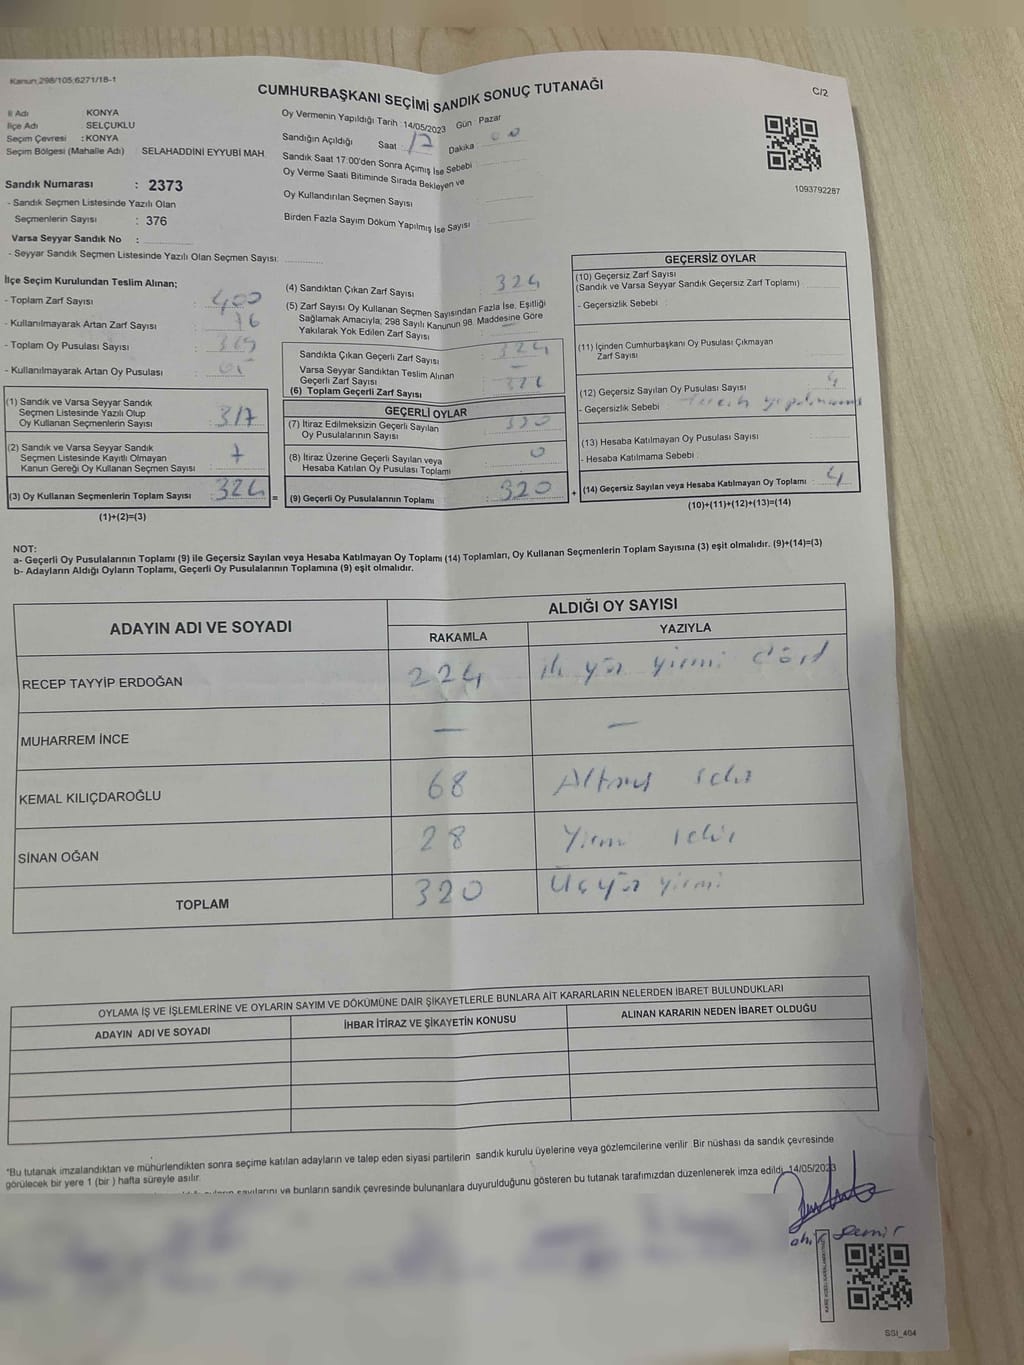 Kanun:298/105;6271/18-1
CUMHURBAŞKANI SEÇİMİ SANDIK SONUÇ TUTANAĞI
C/2
İl Adı KONYA
İlçe Adı : SELÇUKLU
Seçim Çevresi : KONYA
Seçim Bölgesi (Mahalle Adı) : SELAHADDİNİ EYYUBİ MAH.
Sandık Numarası : 2373
- Sandık Seçmen Listesinde Yazılı Olan
Seçmenlerin Sayısı : 376
Varsa Seyyar Sandık No :
- Seyyar Sandık Seçmen Listesinde Yazılı Olan Seçmen Sayısı:
Oy Vermenin Yapıldığı Tarih : 14/05/2023 Gün : Pazar
Sandığın Açıldığı Saat : 17 Dakika : 00
Sandık Saat 17:00'den Sonra Açımış İse Sebebi :
Oy Verme Saati Bitiminde Sırada Bekleyen ve
Oy Kullandırılan Seçmen Sayısı :
Birden Fazla Sayım Döküm Yapılmış İse Sayısı :
1093792287
İlçe Seçim Kurulundan Teslim Alınan;
- Toplam Zarf Sayısı : 400
- Kullanılmayarak Artan Zarf Sayısı : 76
- Toplam Oy Pusulası Sayısı :
- Kullanılmayarak Artan Oy Pusulası :
(1) Sandık ve Varsa Seyyar Sandık
Seçmen Listesinde Yazılı Olup
Oy Kullanan Seçmenlerin Sayısı : 317
(2) Sandık ve Varsa Seyyar Sandık
Seçmen Listesinde Kayıtlı Olmayan
Kanun Gereği Oy Kullanan Seçmen Sayısı : 7
(3) Oy Kullanan Seçmenlerin Toplam Sayısı : 324 =
(1)+(2)=(3)
(4) Sandıktan Çıkan Zarf Sayısı : 324
(5) Zarf Sayısı Oy Kullanan Seçmen Sayısından Fazla İse, Eşitliği
Sağlamak Amacıyla; 298 Sayılı Kanunun 98. Maddesine Göre
Yakılarak Yok Edilen Zarf Sayısı : —
Sandıkta Çıkan Geçerli Zarf Sayısı : 324
Varsa Seyyar Sandıktan Teslim Alınan
Geçerli Zarf Sayısı : —
(6) Toplam Geçerli Zarf Sayısı : 324
GEÇERLİ OYLAR
(7) İtiraz Edilmeksizin Geçerli Sayılan
Oy Pusulalarının Sayısı : 320
(8) İtiraz Üzerine Geçerli Sayılan veya
Hesaba Katılan Oy Pusulası Toplamı : 0
(9) Geçerli Oy Pusulalarının Toplamı : 320 +
GEÇERSİZ OYLAR
(10) Geçersiz Zarf Sayısı
(Sandık ve Varsa Seyyar Sandık Geçersiz Zarf Toplamı) :
- Geçersizlik Sebebi :
(11) İçinden Cumhurbaşkanı Oy Pusulası Çıkmayan
Zarf Sayısı :
(12) Geçersiz Sayılan Oy Pusulası Sayısı : 4
- Geçersizlik Sebebi : tercih yapılmamış
(13) Hesaba Katılmayan Oy Pusulası Sayısı :
- Hesaba Katılmama Sebebi :
(14) Geçersiz Sayılan veya Hesaba Katılmayan Oy Toplamı : 4
(10)+(11)+(12)+(13)=(14)
NOT:
a- Geçerli Oy Pusulalarının Toplamı (9) ile Geçersiz Sayılan veya Hesaba Katılmayan Oy Toplamı (14) Toplamları, Oy Kullanan Seçmenlerin Toplam Sayısına (3) eşit olmalıdır. (9)+(14)=(3)
b- Adayların Aldığı Oyların Toplamı, Geçerli Oy Pusulalarının Toplamına (9) eşit olmalıdır.
ADAYIN ADI VE SOYADI
ALDIĞI OY SAYISI
RAKAMLA YAZIYLA
RECEP TAYYİP ERDOĞAN 224 iki yüz yirmi dört
MUHARREM İNCE — —
KEMAL KILIÇDAROĞLU 68 Altmış sekiz
SİNAN OĞAN 28 Yirmi sekiz
TOPLAM 320 Üçyüz yirmi
OYLAMA İŞ VE İŞLEMLERİNE VE OYLARIN SAYIM VE DÖKÜMÜNE DAİR ŞİKAYETLERLE BUNLARA AİT KARARLARIN NELERDEN İBARET BULUNDUKLARI
ADAYIN ADI VE SOYADI İHBAR İTİRAZ VE ŞİKAYETİN KONUSU ALINAN KARARIN NEDEN İBARET OLDUĞU
*Bu tutanak imzalandıktan ve mühürlendikten sonra seçime katılan adayların ve talep eden siyasi partilerin sandık kurulu üyelerine veya gözlemcilerine verilir. Bir nüshası da sandık çevresinde
görülecek bir yere 1 (bir ) hafta süreyle asılır.
ve bunların sandık çevresinde bulunanlara duyurulduğunu gösteren bu tutanak tarafımızdan düzenlenerek imza edildi. 14/05/2023
Demir
SSI_404